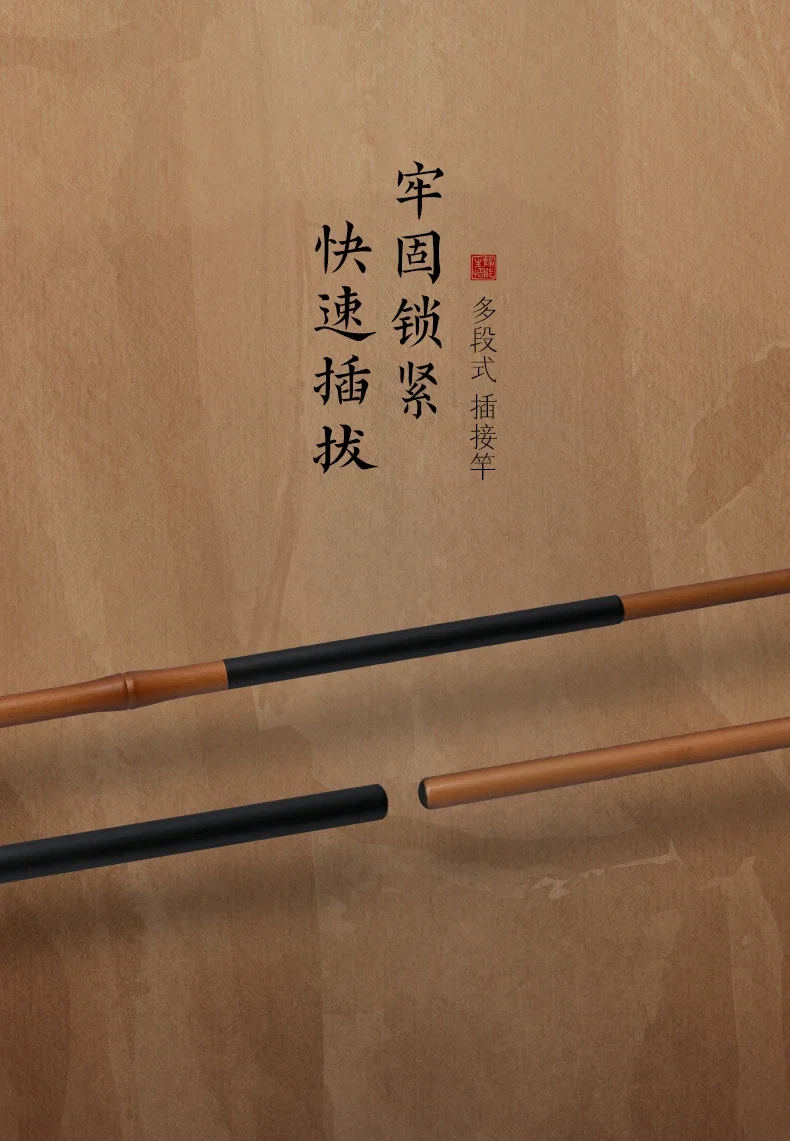 多段式 插接竿
牢固锁紧
快速插拔